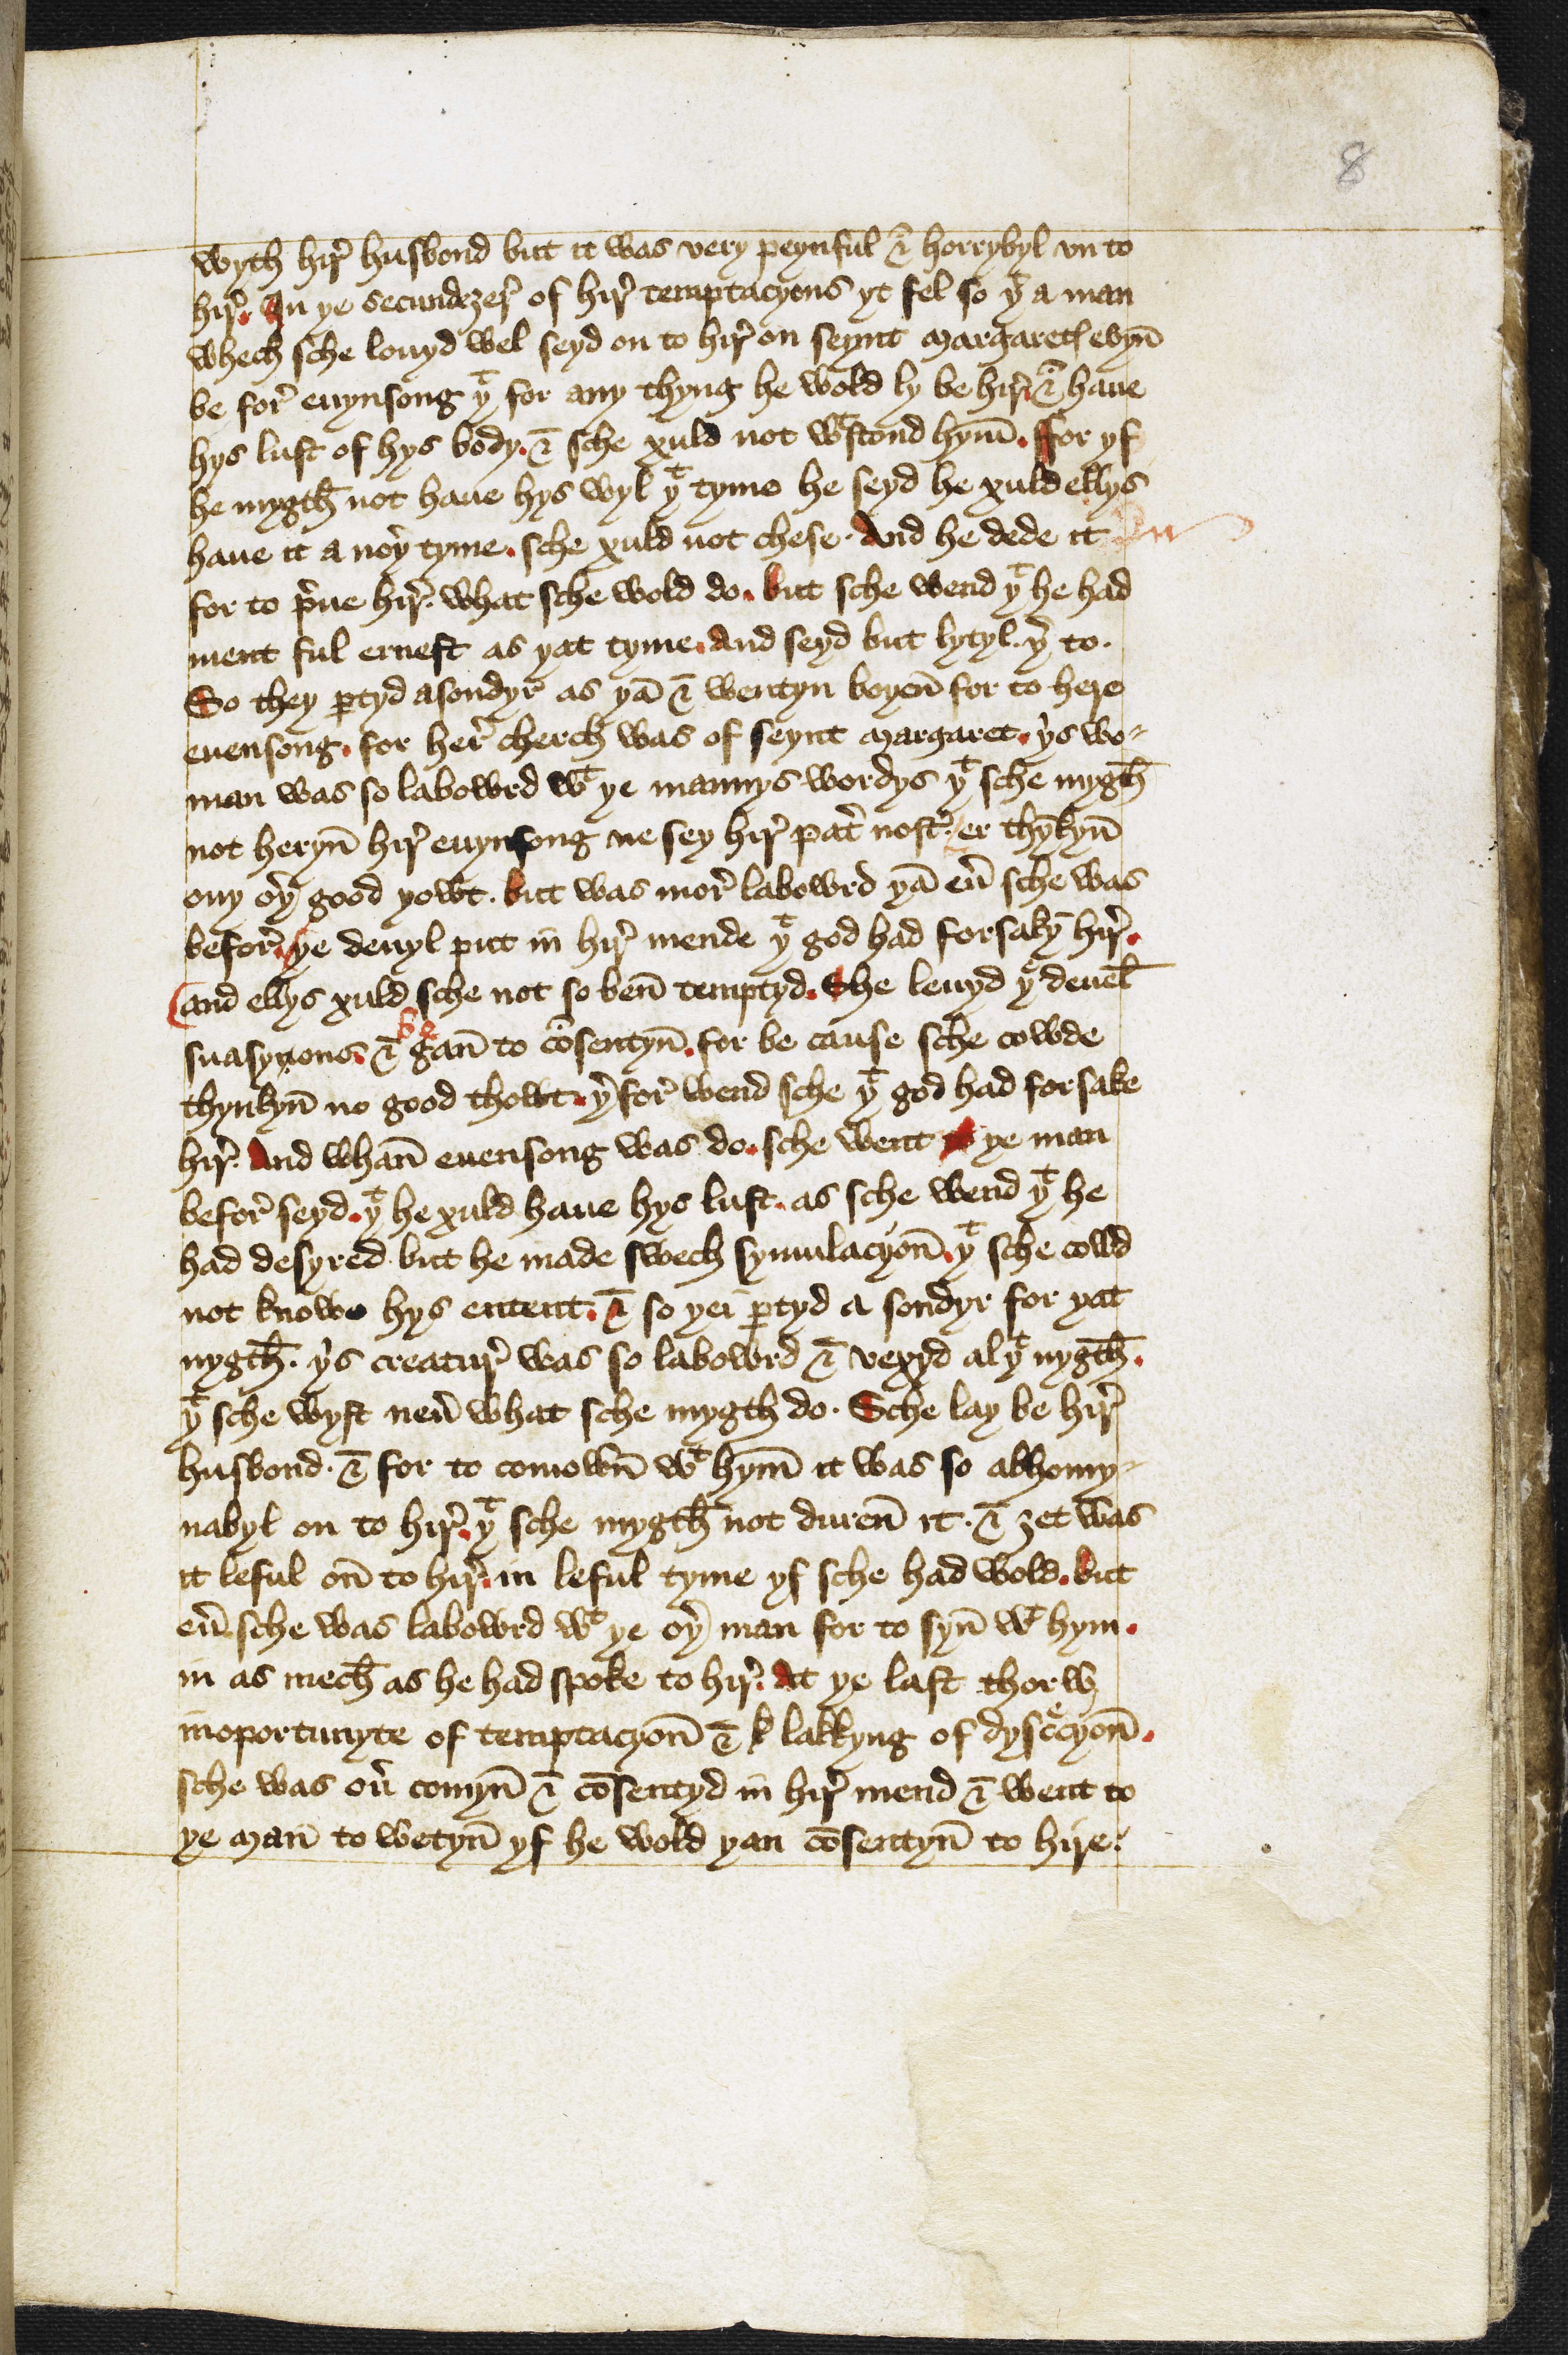 8
wyth hir̛ husbond but it was very peynful & horrybyl vn to
hir̛. In ye secunde ȝer̛ of hir̛ temptacyons yt fel so yͭ a man
whech sche louyd wel seyd on to hir̛ on seynt Margaretꝭ evyn̄
be for̛ euynsong yͭ for any thyng he wold ly be hir̛ & haue
hys lust of hys body. & sche xuld not wͭstond hym̄. ffor yf
he mygth̄ not haue hys wyl yͭ tyme he seyd he xuld ellys
haue it a noy̛ tyme. sche xuld not chese. And he dede it
for to p̛ue hir̛. what sche wold do. but sche wend yͭ he had
ment ful ernest as yat tyme. And seyd but lytyl. y̛ to.
So they ꝑtyd asondyr as yā & wentyn boyen̄ for to here
euensong. for her̛ cherch was of seynt Margaret. yͥs wo-
man was so labowrd wͭ ye mannys wordys yͭ sche mygth̄
not heryn̄ hir̛ euynsong ne sey hir̛ pat̛ nost̛. er thȳkyn̄
ony oy̛ good yowt. but was mor̛ labowrd yā eư sche was
befor̛. ye deuyl put in hir̛ mende yͭ god had forsakȳ hir̛.
and ellys xuld sche not so ben̄ temptyd. She leuyd yͤ deuelꝭ
suasyons. & be gan̄ to cōsentyn̄. for be cause sche cowde
thynkyn̄ no good thowt. y̛ for̛ wend sche yͭ god had forsake
hir̛. And whan̄ euensong was do. sche went to ye man
befor̛ seyd. yͭ he xuld haue hys lust. as sche wend yͭ he
had desyred. but he made swech symulacyon̄. yͭ sche cowd
not knowe hys entent. & so yei ꝑtyd a sondyr for yat
nygth̄. yͥs creatur̛ was so labowrd & vexyd al yͭ nygth̄.
yͭ sche wyst neư what sche mygth do. Sche lay be hir̛
husbond. & for to comown̄ wͭ hym̄ it was so abhomy-
nabyl on to hir̛. yͭ sche mygth̄ not duren̄ it. & ȝet was
it leful on̄ to hir̛. in leful tyme yf sche had wold. but
eư sche was labowrd wͭ ye oy̛ man for to syn̄ wͭ hym.
in as mech̄ as he had spoke to hir̛. At ye last thorw
inoportunyte of temptacyon̄ & lakkyng of dyscͤcyon̄.
sche was oư comyn̄ & cōsentyd in hir̛ mend & went to
ye Man̄ to wetyn̄ yf he wold yan cōsentyn̄ to hire.